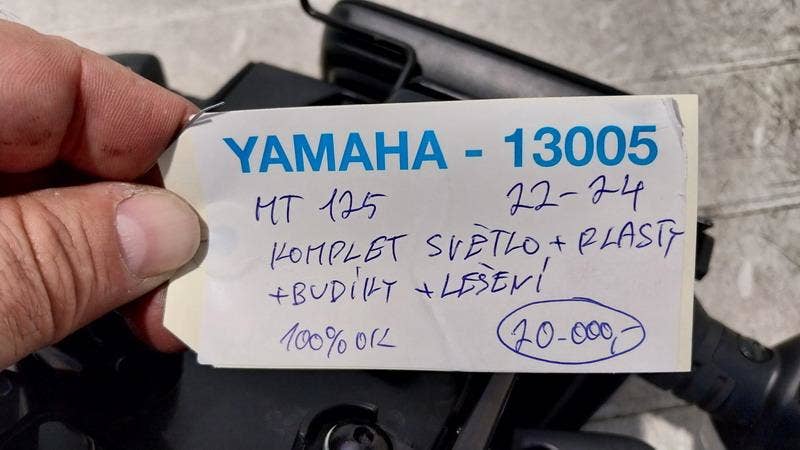 YAMAHA - 13005
MT 125 22-24
KOMPLET SVĚTLO + PLASTY
+BUDÍKY +LEŠENÍ
100% OK 20-000,-